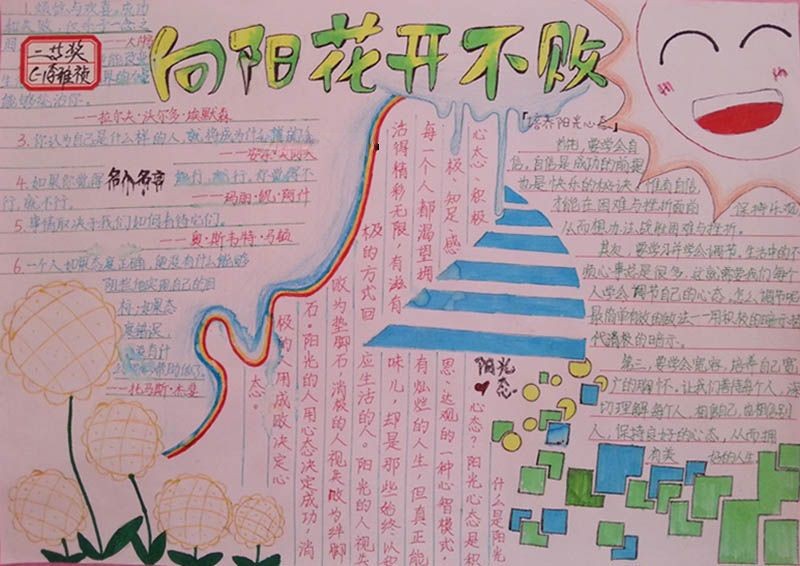 向阳花开不败
二等奖
1.
能够战胜你。
——拉尔夫·沃尔多·埃默森
3.你认为自己是什么样的人，就将成为什么样的人
4.如果你觉得
能行，就行，你觉得不
行，就不行。
——玛丽·凯·阿什
5.事情取决于我们如何看待它们。
——奥·斯韦特·马顿
6.一个人如果态度正确，便没有什么能够
阻拦他实现自己的目
标，如果态
度错误，
——托马斯·杰斐
阳光
心态
什么是阳光
心态？阳光心态是积
极、知足、感
思、达观的一种心智模式，
心态 积极
每一个人都渴望拥
有灿烂的人生，但真正能
活得精彩无限，有滋有
味儿，却是那些始终以积
极的方式回
应生活的人。阳光的人视失
败为垫脚石，消极的人视失败为绊脚
石。阳光的人用心态决定成功，消
极的人用成败决定心
态。
「培养阳光心态」
首先，要学会自
信。自信是成功的前提
也是快乐的秘诀。惟有自信，
才能在困难与挫折面前
保持乐观
从而想办法战胜困难与挫折。
其次，要学习并学会调节。生活中的不
顺心事总是很多，这就需要我们每个
人学会调节自己的心态，怎么调节呢
最简单有效的做法——用积极的暗示替
代消极的暗示。
第三，要学会宽容，培养自己宽
广的胸怀。让我们善待每个人，深
切理解每个人，相信自己，也相信别
人，保持良好的心态，从而拥
有美
好的人生